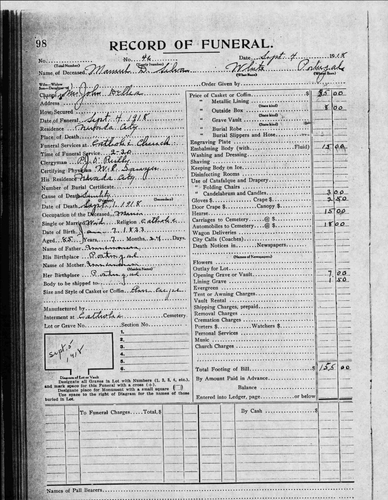 98
RECORD OF FUNERAL.
No. 46 Date Sept. 4 1918
(Total Number) (Yearly Number)
Name of Deceased Manuel D. Silva White Portugal
(What Race) (Where Born)
Charge to Mr. John
Address
Order Given by
Date of Funeral Sept 4 1918
Residence Nevada City
Place of Death
Funeral Services at Catholic Church
Time of Funeral Service 2-30
Clergyman P. J. O' Reilly
Certifying Physician
His Residence Nevada City
Number of Burial Certificate
Cause of Death
Date of Death Sept. 1, 1918
Occupation of the Deceased Miner
Single or Married Religion Catholic
Date of Birth Jan 7, 1833
Aged 85 Years 7 Months 24 Days
Name of Father
His Birthplace Portugal
Name of Mother
Her Birthplace Portugal
Body to be shipped to
Size and Style of Casket or Coffin
Manufactured by
Interment at Catholic Cemetery
Lot or Grave No. Section No.
Sept. 5
1918
1
2
3
4
5
6
Diagram of Lot or Vault
Designate all Graves in Lot with Numbers (1, 2, 3, 4, etc.), and mark space by this Funeral with a cross (+).
Designate place for Monument with a small square
Use space to the right of Diagram for the names of those buried in Lot.
Price of Casket or Coffin $ 95 00
" Metallic Lining
" Outside Box 8 00
" Grave Vault
" Burial Robe
" Burial Slippers and Hose
Engraving Plate
Embalming Body (with Fluid) 15 00
Washing and Dressing
Shaving
Keeping Body on Ice
Disinfecting Rooms
Use of Catafalque and Drapery
" Folding Chairs
" Candelabrum and Candles 3 00
Gloves $ Crape $ 2 50
Door Crape Candles $
Hearse 15 00
Carriages to Cemetery @ $
Automobiles to Cemetery @ $ 18 00
Wagon Deliveries
City Calls (Coaches)
Death Notices in Newspapers
Flowers
Outlay for Lot
Opening Grave or Vault 7 00
Lining Grave 1 50
Evergreen
Tent or Awning Charges
Vault Rental
Shipping Charges, prepaid
Removal Charges
Cremation Charges
Porters $ Watchers $
Personal Services
Music
Church Charges
Total Footing of Bill $ 155 00
By Amount Paid in Advance
Balance
Entered into Ledger, page or below
To Funeral Charges Total, $ By Cash $
Names of Pall Bearers